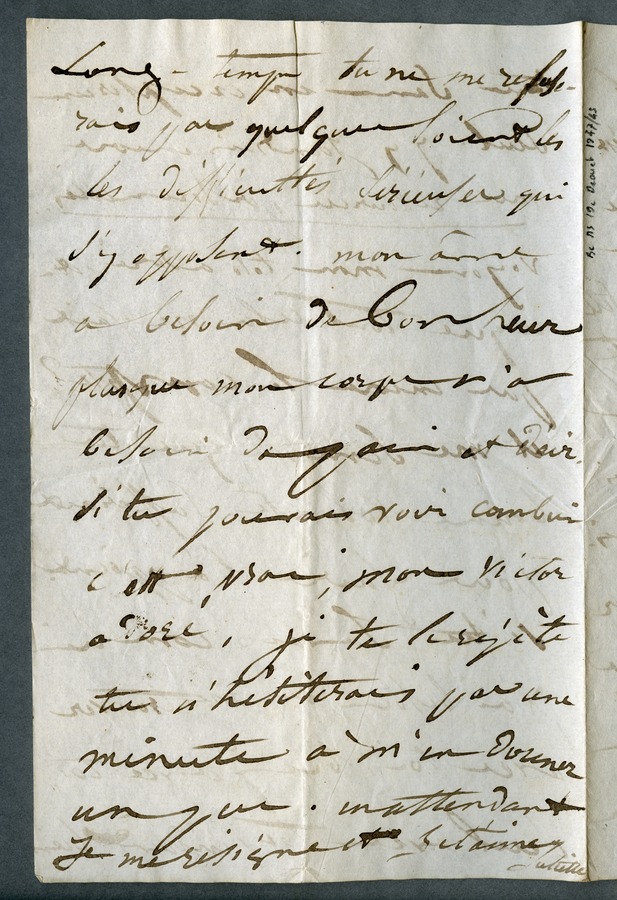 Long-temps tu ne me refuse-
rais pas quelques soient les
les difficultés sérieuses qui
s'y opposent. mon âme
a besoin de bonheur
plus que mon corps n'a
besoin de pain et d'air.
Si tu pouvais voir combien
c'est vrai, mon Victor
adoré, je te le répète
tu n'hésiterais pas une
minute à m'en donner
un peu. en attendant
Je me résigne et je t'aime
Juliette